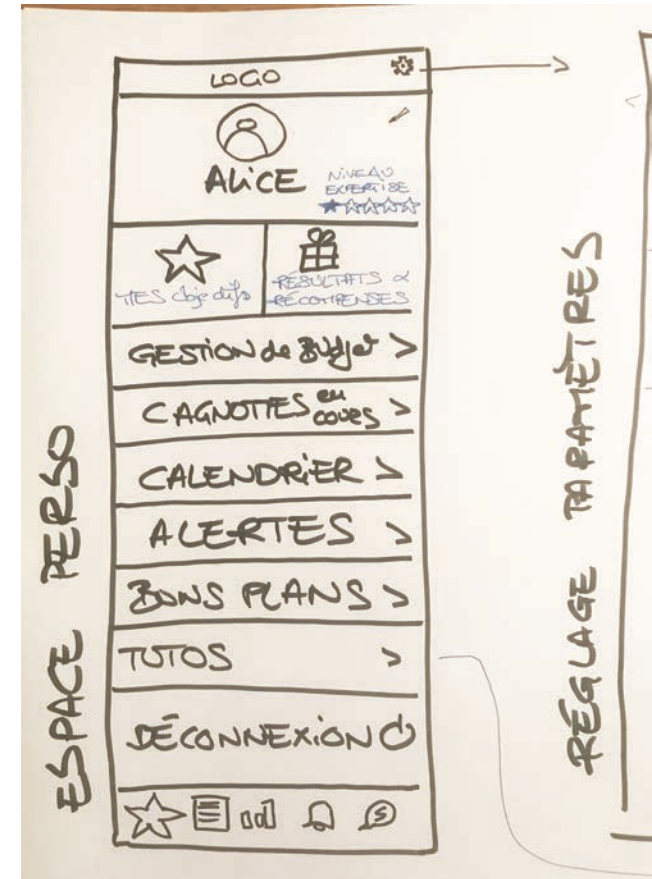 ESPACE PERSO
LOGO
ALiCE
NiVEAU
EXPERTISE
MES objectifs
RÉSULTATS &
RÉCOMPENSES
GESTiON de Budjet >
CAGNOTTES en cours >
CALENDRiER >
ALERTES >
BONS PLANS >
TUTOS >
DÉCONNEXiON
RÉGLAGE PARAMÈTRES